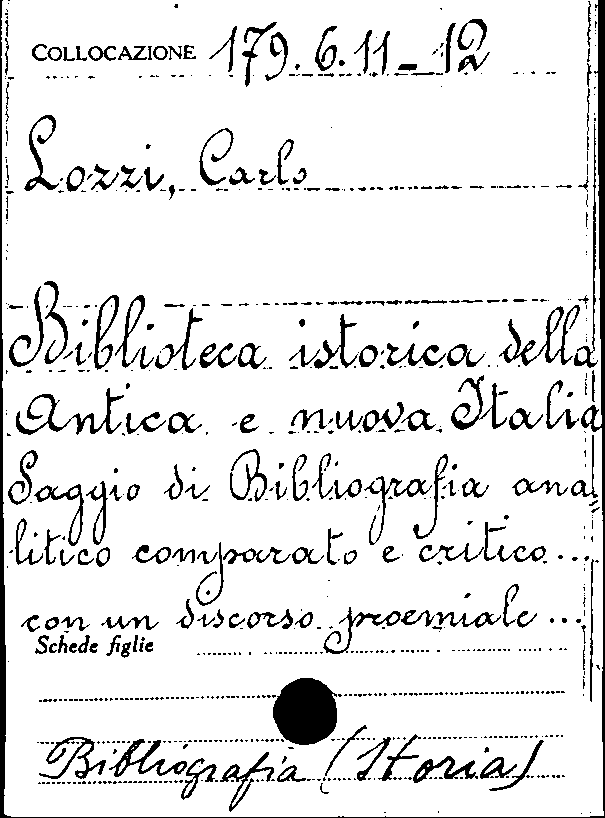 COLLOCAZIONE 179.6.11-12
Lozzi, Carlo
Biblioteca istorica della
Antica e nuova Italia
Saggio di Bibliografia ana=
litico comparato e critico...
con un discorso proemiale...
Schede figlie
Bibliografia (Storia)